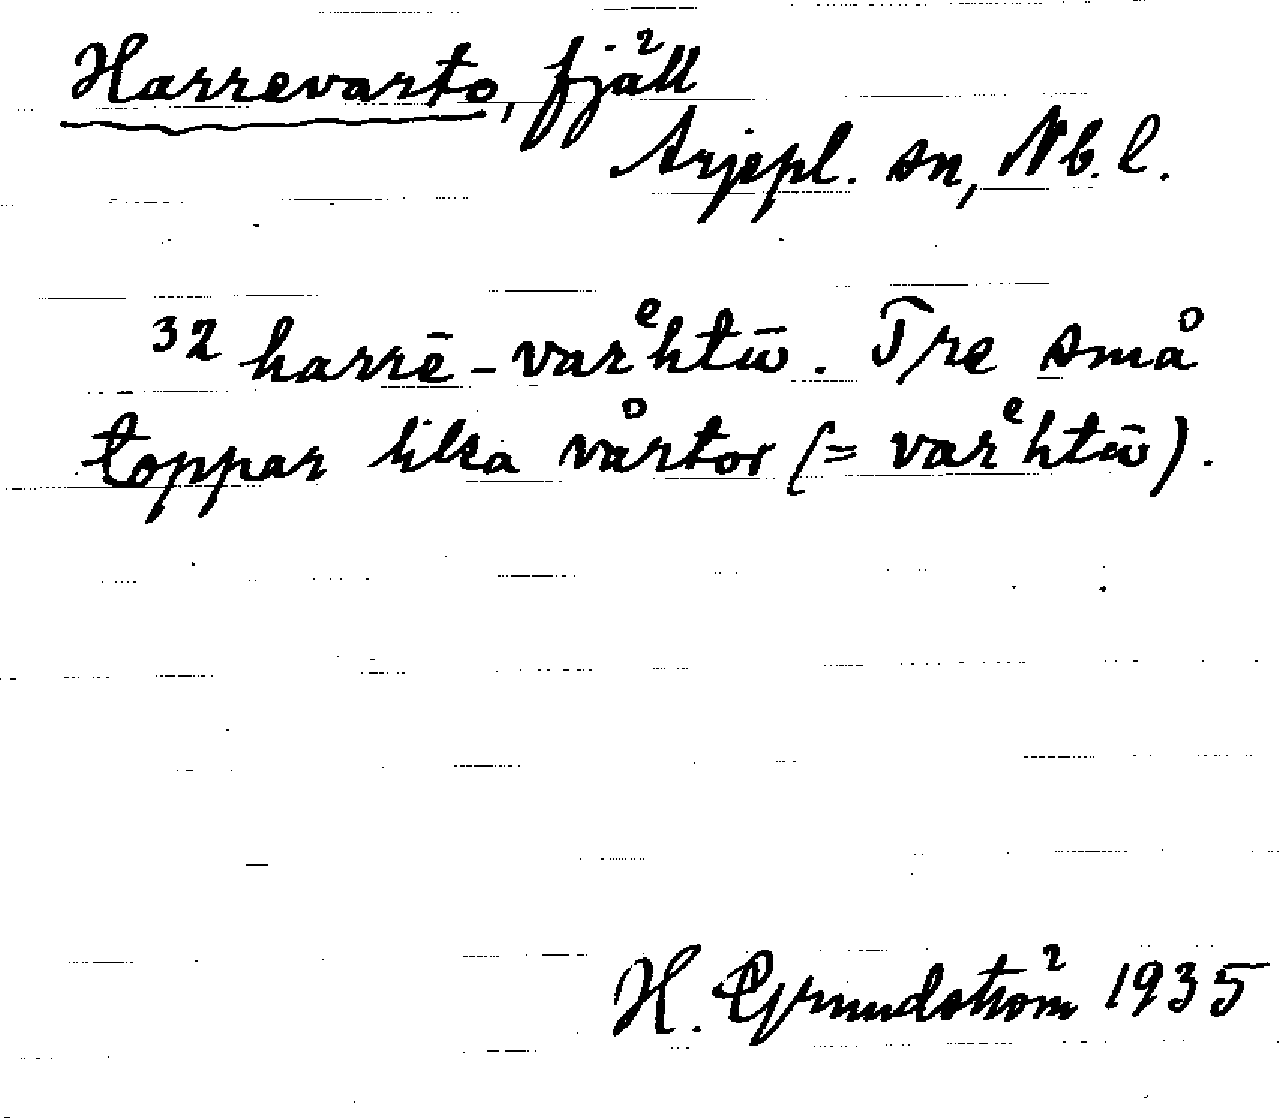 Harrevarto, fjäll
Arjepl. sn, Nb. l.
32 harrē-varᵉhtω̄. Tre små
toppar lika vårtor (= varᵉhtω̄).
H. Grundström 1935